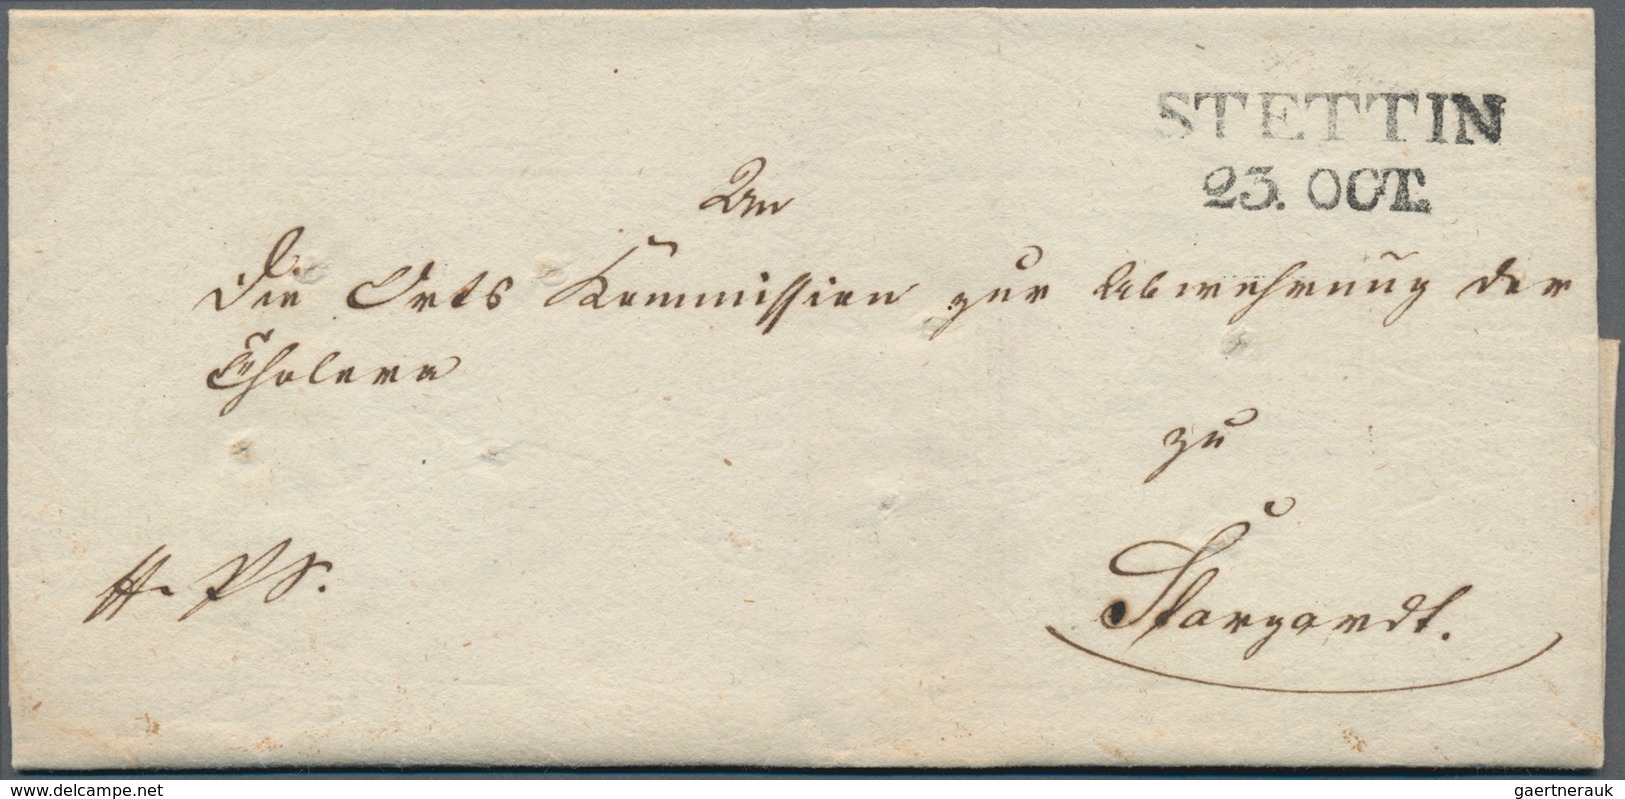 STETTIN
23. OCT.
An
Die Orts Kommission zur Abwehrung der
Cholera
zu
Stargardt.
www.delcampe.net
gaertnerauk